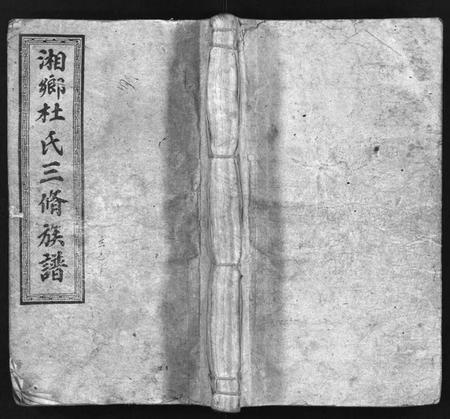 湘鄉杜氏三脩族譜